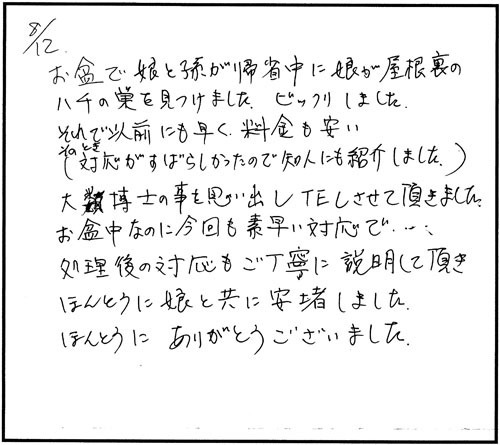 8/12.
お盆で娘と孫が帰省中に娘が屋根裏の
ハチの巣を見つけました。ビックリしました。
それで以前にも早く、料金も安い
(そのとき対応がすばらしかったので知人にも紹介しました。)
大 博士の事を思い出しTELさせて頂きました。
お盆中なのに今回も素早い対応で…、
処理後の対応もご丁寧に説明して頂き
ほんとうに娘と共に安堵しました。
ほんとうに ありがとうございました。